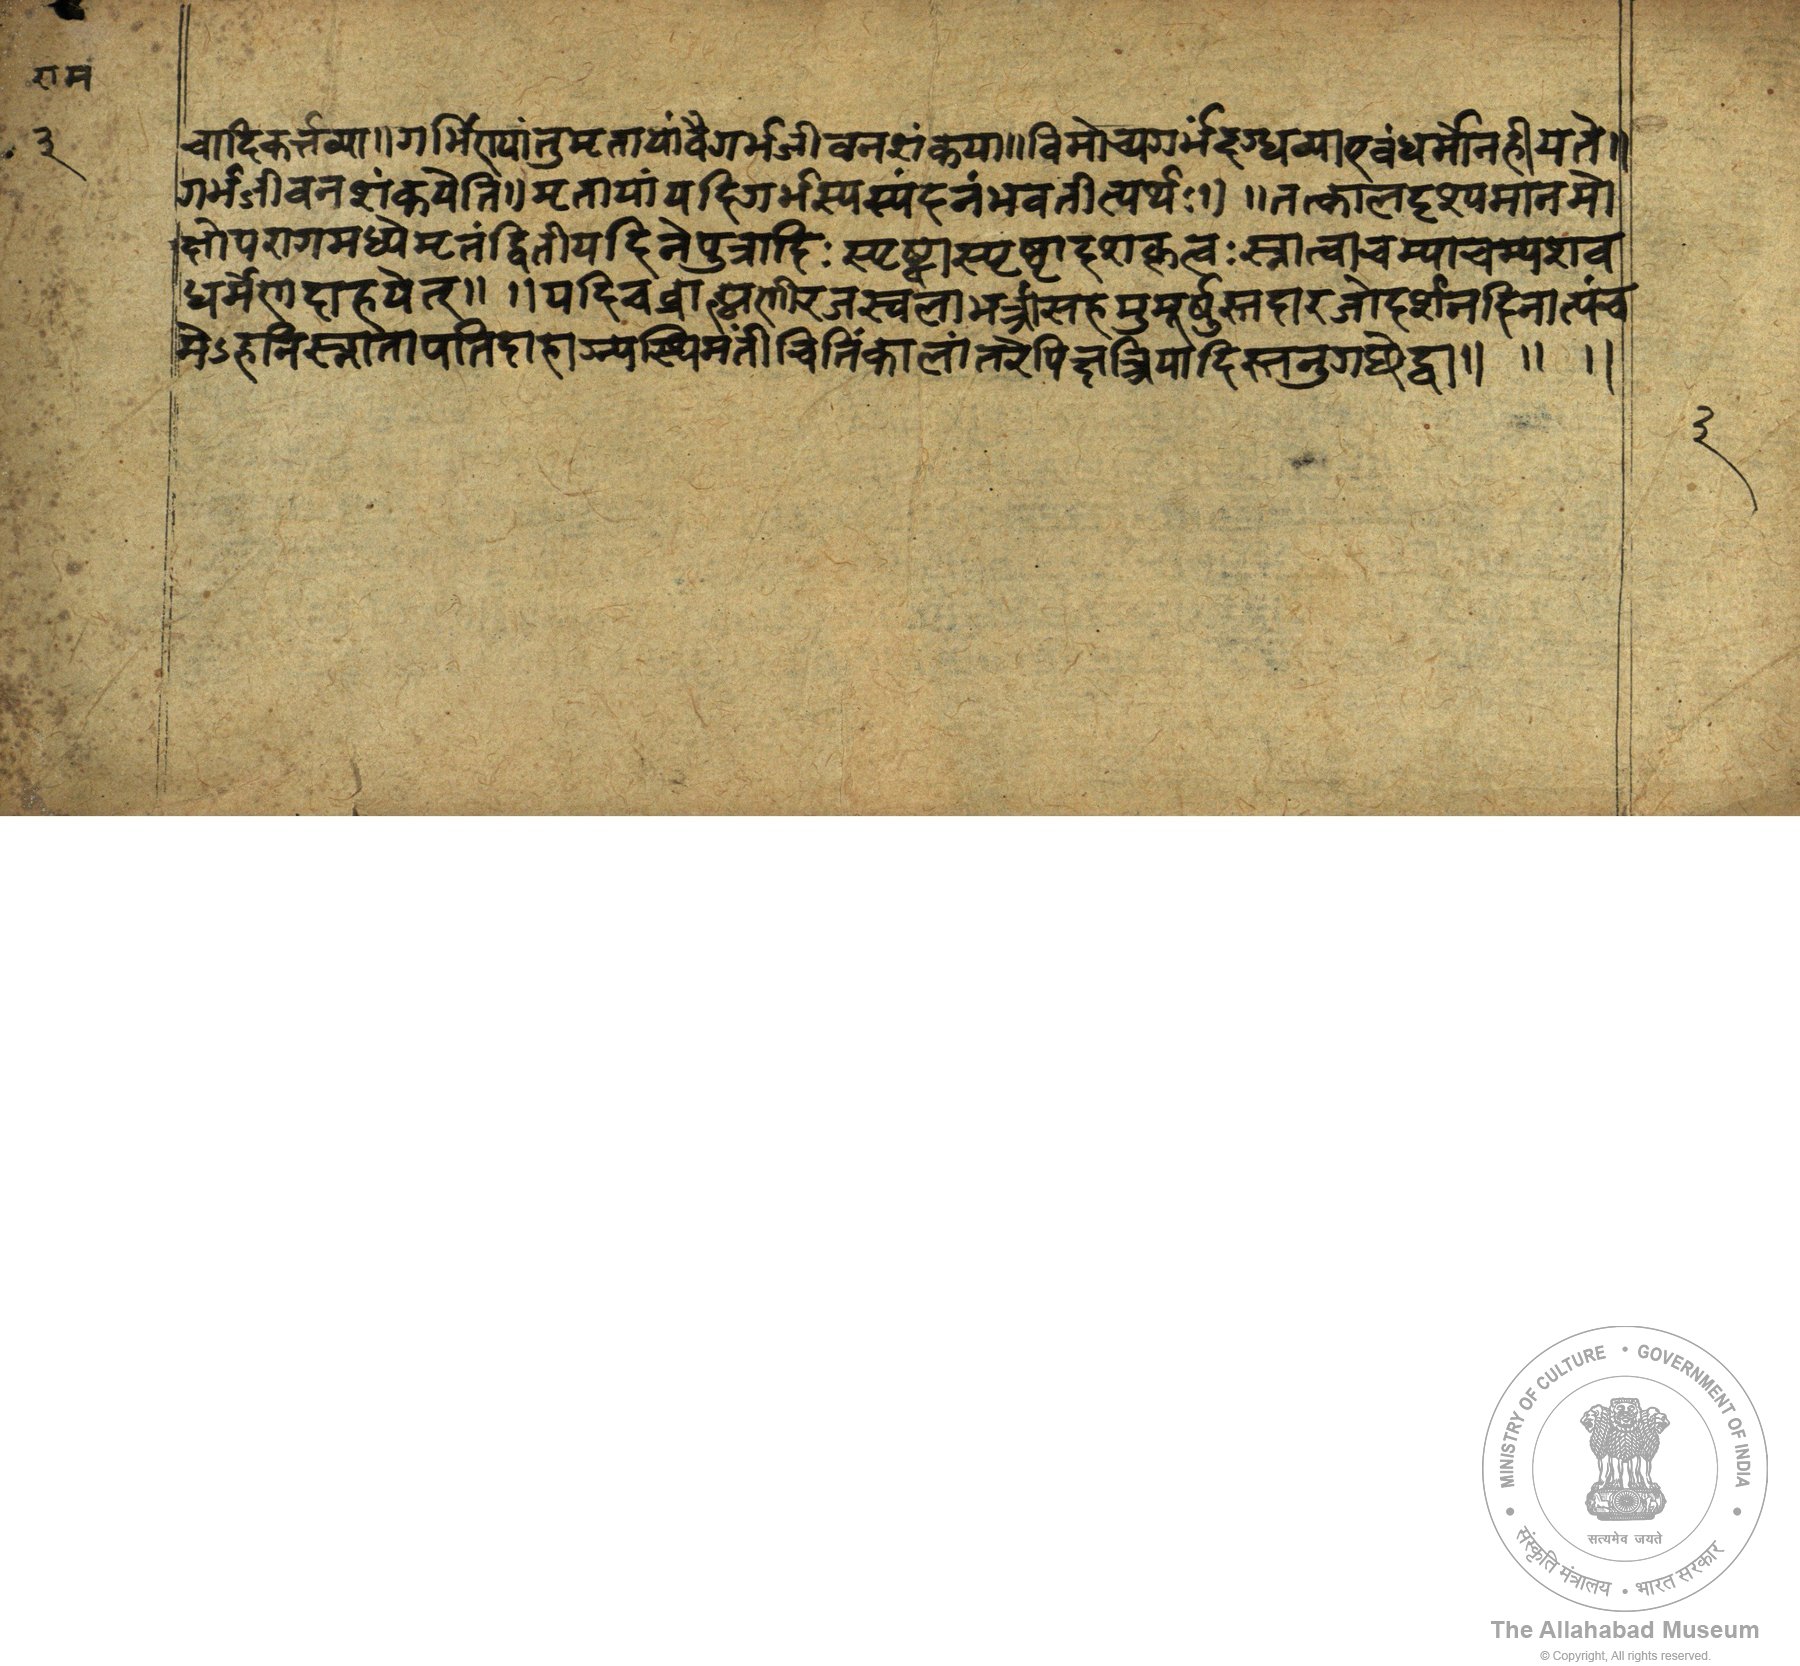 राम
३
चादिकर्त्तव्या॥गर्भिण्यांतुमृतायांवैगर्भजीवनशंकया॥विमोच्यगर्भंदग्धव्याएवंधर्मोनहीयते॥
गर्भजीवनशंकयेति॥मृतायांयदिगर्भस्यस्पंदनंभवतीत्यर्थः॥ ॥तत्कालदृश्यमानमो
क्षोपरागमध्येमृतंद्वितीयदिनेपुत्रादिः स्पृष्ट्वास्पृष्ट्वादशकृत्वःस्नात्वाचम्याचम्यशव
धर्मेणदाहयेत्॥ ॥यदिचब्राह्मणीरजस्वलाभर्त्रासहमुमूर्षुस्तदारजोदर्शनदिनात्पंच
मेऽहनिस्नातापतिदाहाग्न्यस्थिमंतीचितिंकालांतरेपिक्षत्रियादिस्तनुगच्छेद्वा॥ ॥ ॥
३
MINISTRY OF CULTURE • GOVERNMENT OF INDIA
सत्यमेव जयते
संस्कृति मंत्रालय • भारत सरकार
The Allahabad Museum
© Copyright, All rights reserved.